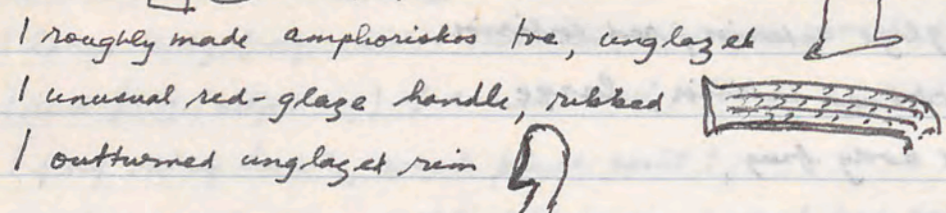 1 roughly made amphoriskos toe, unglazed
1 unusual red-glaze handle, ribbed
1 outturned unglazed rim